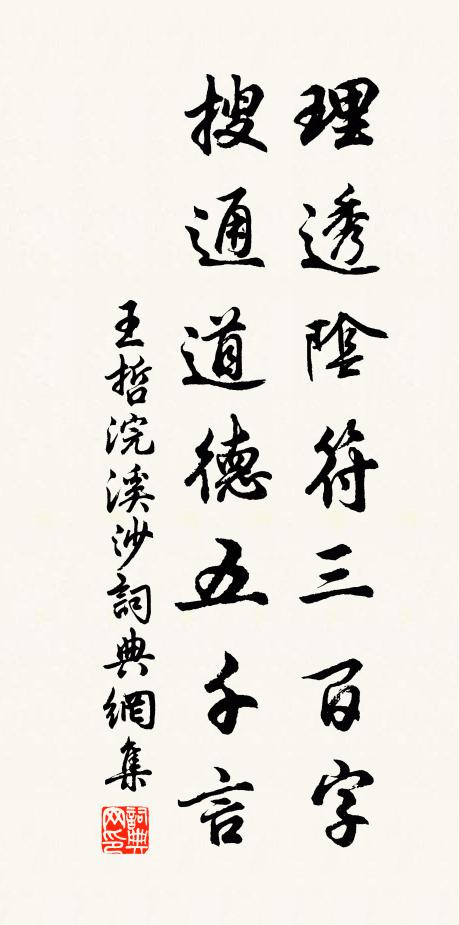 理透陰符三百字
搜通道德五千言
王哲浣溪沙詞典網集
詞典网印